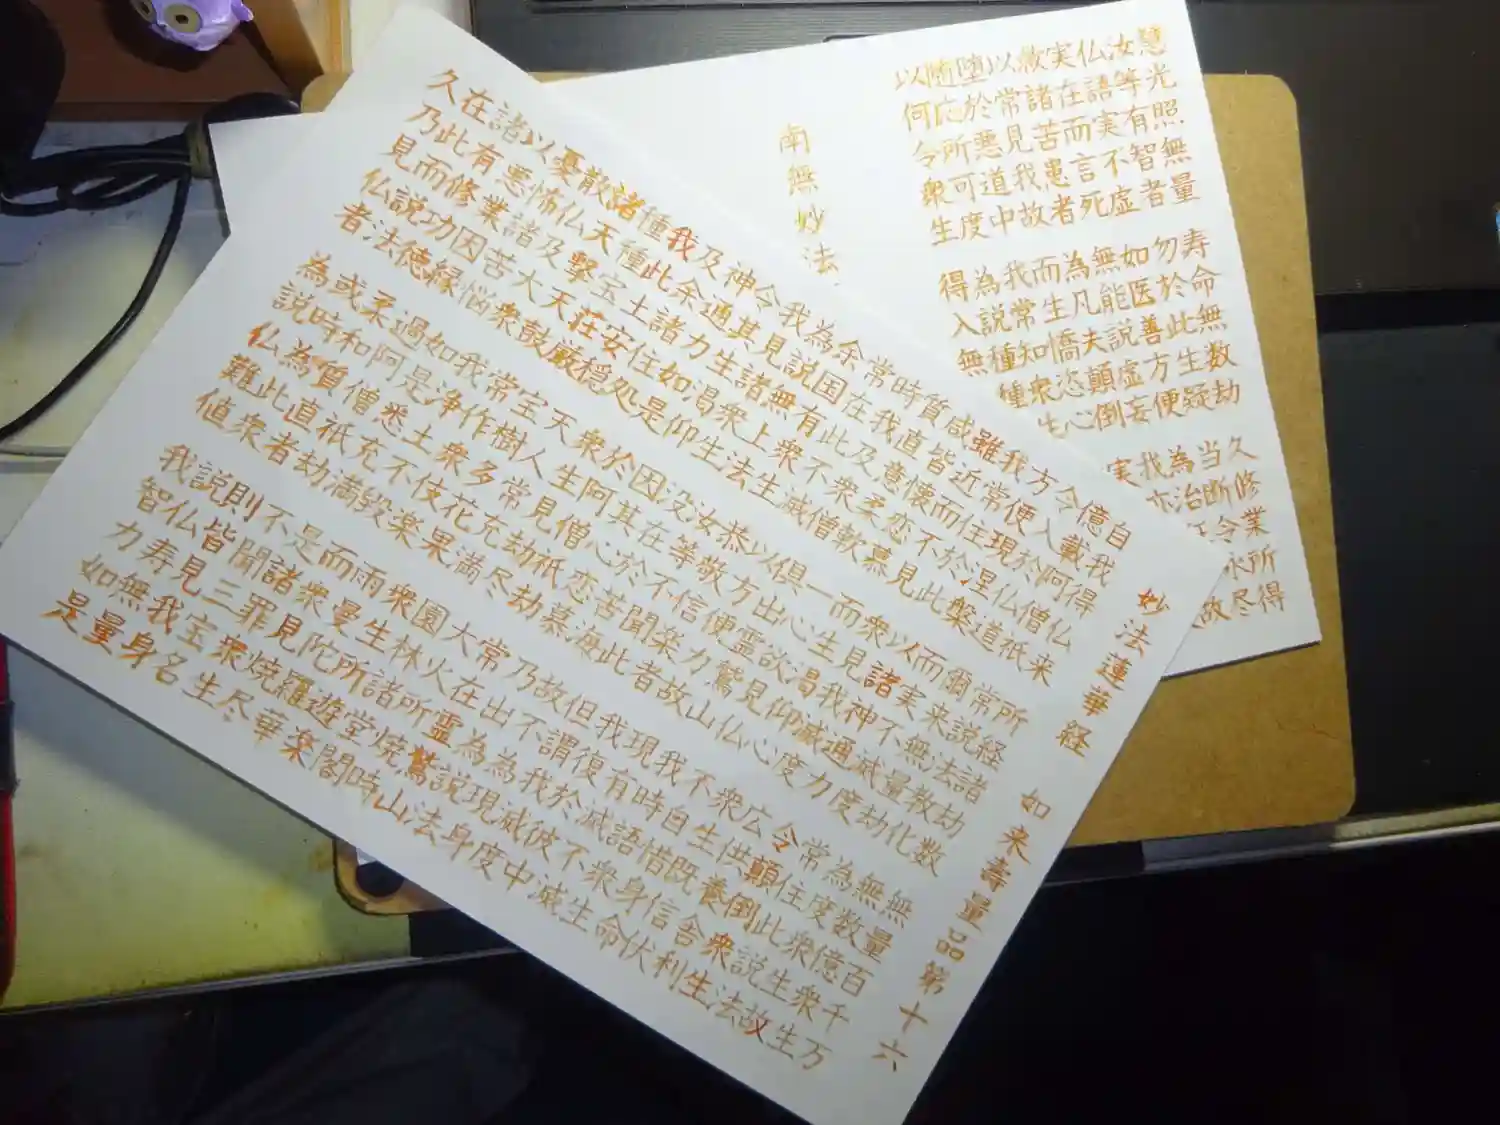 妙法蓮華経 如来壽量品第十六
自我得仏来 所経諸劫数 無量百千万
億載阿僧祇 常説法教化 無数億衆生
令入於仏道 爾来無量劫 為度衆生故
方便現涅槃 而実不滅度 常住此説法
我常住於此 以諸神通力 令顛倒衆生
雖近而不見 衆見我滅度 広供養舎利
咸皆懐恋慕 而生渇仰心 衆生既信伏
質直意柔軟 一心欲見仏 不自惜身命
時我及衆僧 俱出霊鷲山 我時語衆生
常在此不滅 以方便力故 現有滅不滅
余国有衆生 恭敬信楽者 我復於彼中
為説無上法 汝等不聞此 但謂我滅度
我見諸衆生 没在於苦海 故不為現身
令其生渇仰 因其心恋慕 乃出為説法
神通力如是 於阿僧祇劫 常在霊鷲山
及余諸住処 衆生見劫尽 大火所焼時
我此土安穏 天人常充満 園林諸堂閣
種種宝荘厳 宝樹多花果 衆生所遊楽
諸天撃天鼓 常作衆伎楽 雨曼陀羅華
散仏及大衆 我浄土不毀 而衆見焼尽
憂怖諸苦悩 如是悉充満 是諸罪衆生
以悪業因縁 過阿僧祇劫 不聞三宝名
諸有修功徳 柔和質直者 則皆見我身
在此而説法 或時為此衆 説仏寿無量
久乃見仏者 為説仏難値 我智力如是
慧光照無量 寿命無数劫 久修業所得
汝等有智者 勿於此生疑 当断令永尽
仏語実不虚 如医善方便 為治故
実在而言死 無能説虚妄 我亦
救諸苦患者 為凡夫顛倒 実
以常見我故 而生憍恣心
堕於悪道中 我常知衆生
随応所可度 為説種種
以何令衆生 得入無
南無妙法